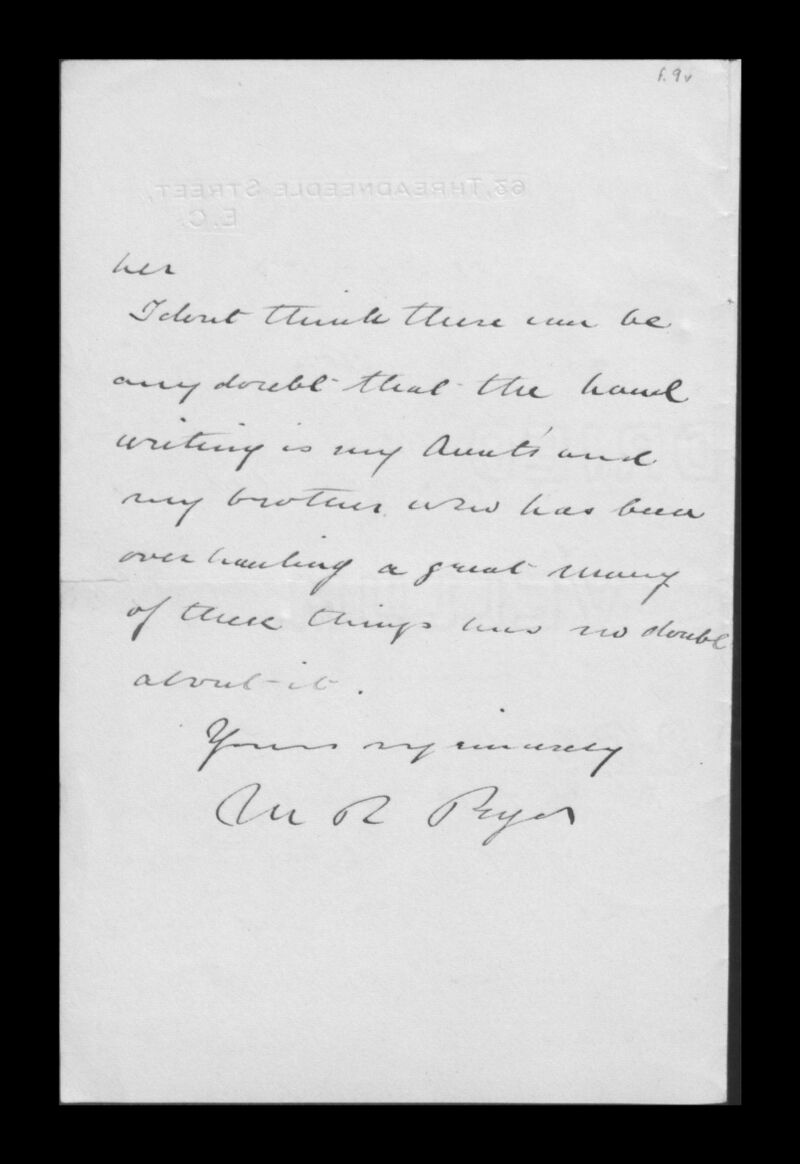 f. 9v
63, THREADNEEDLE STREET,
E.C.
her
I dont think there can be
any doubt that the hand
writing is my Aunt's and
my brother who has been
over hauling a great many
of these things has no doubt
about it.
Yours vy sincerely
M R Pryor